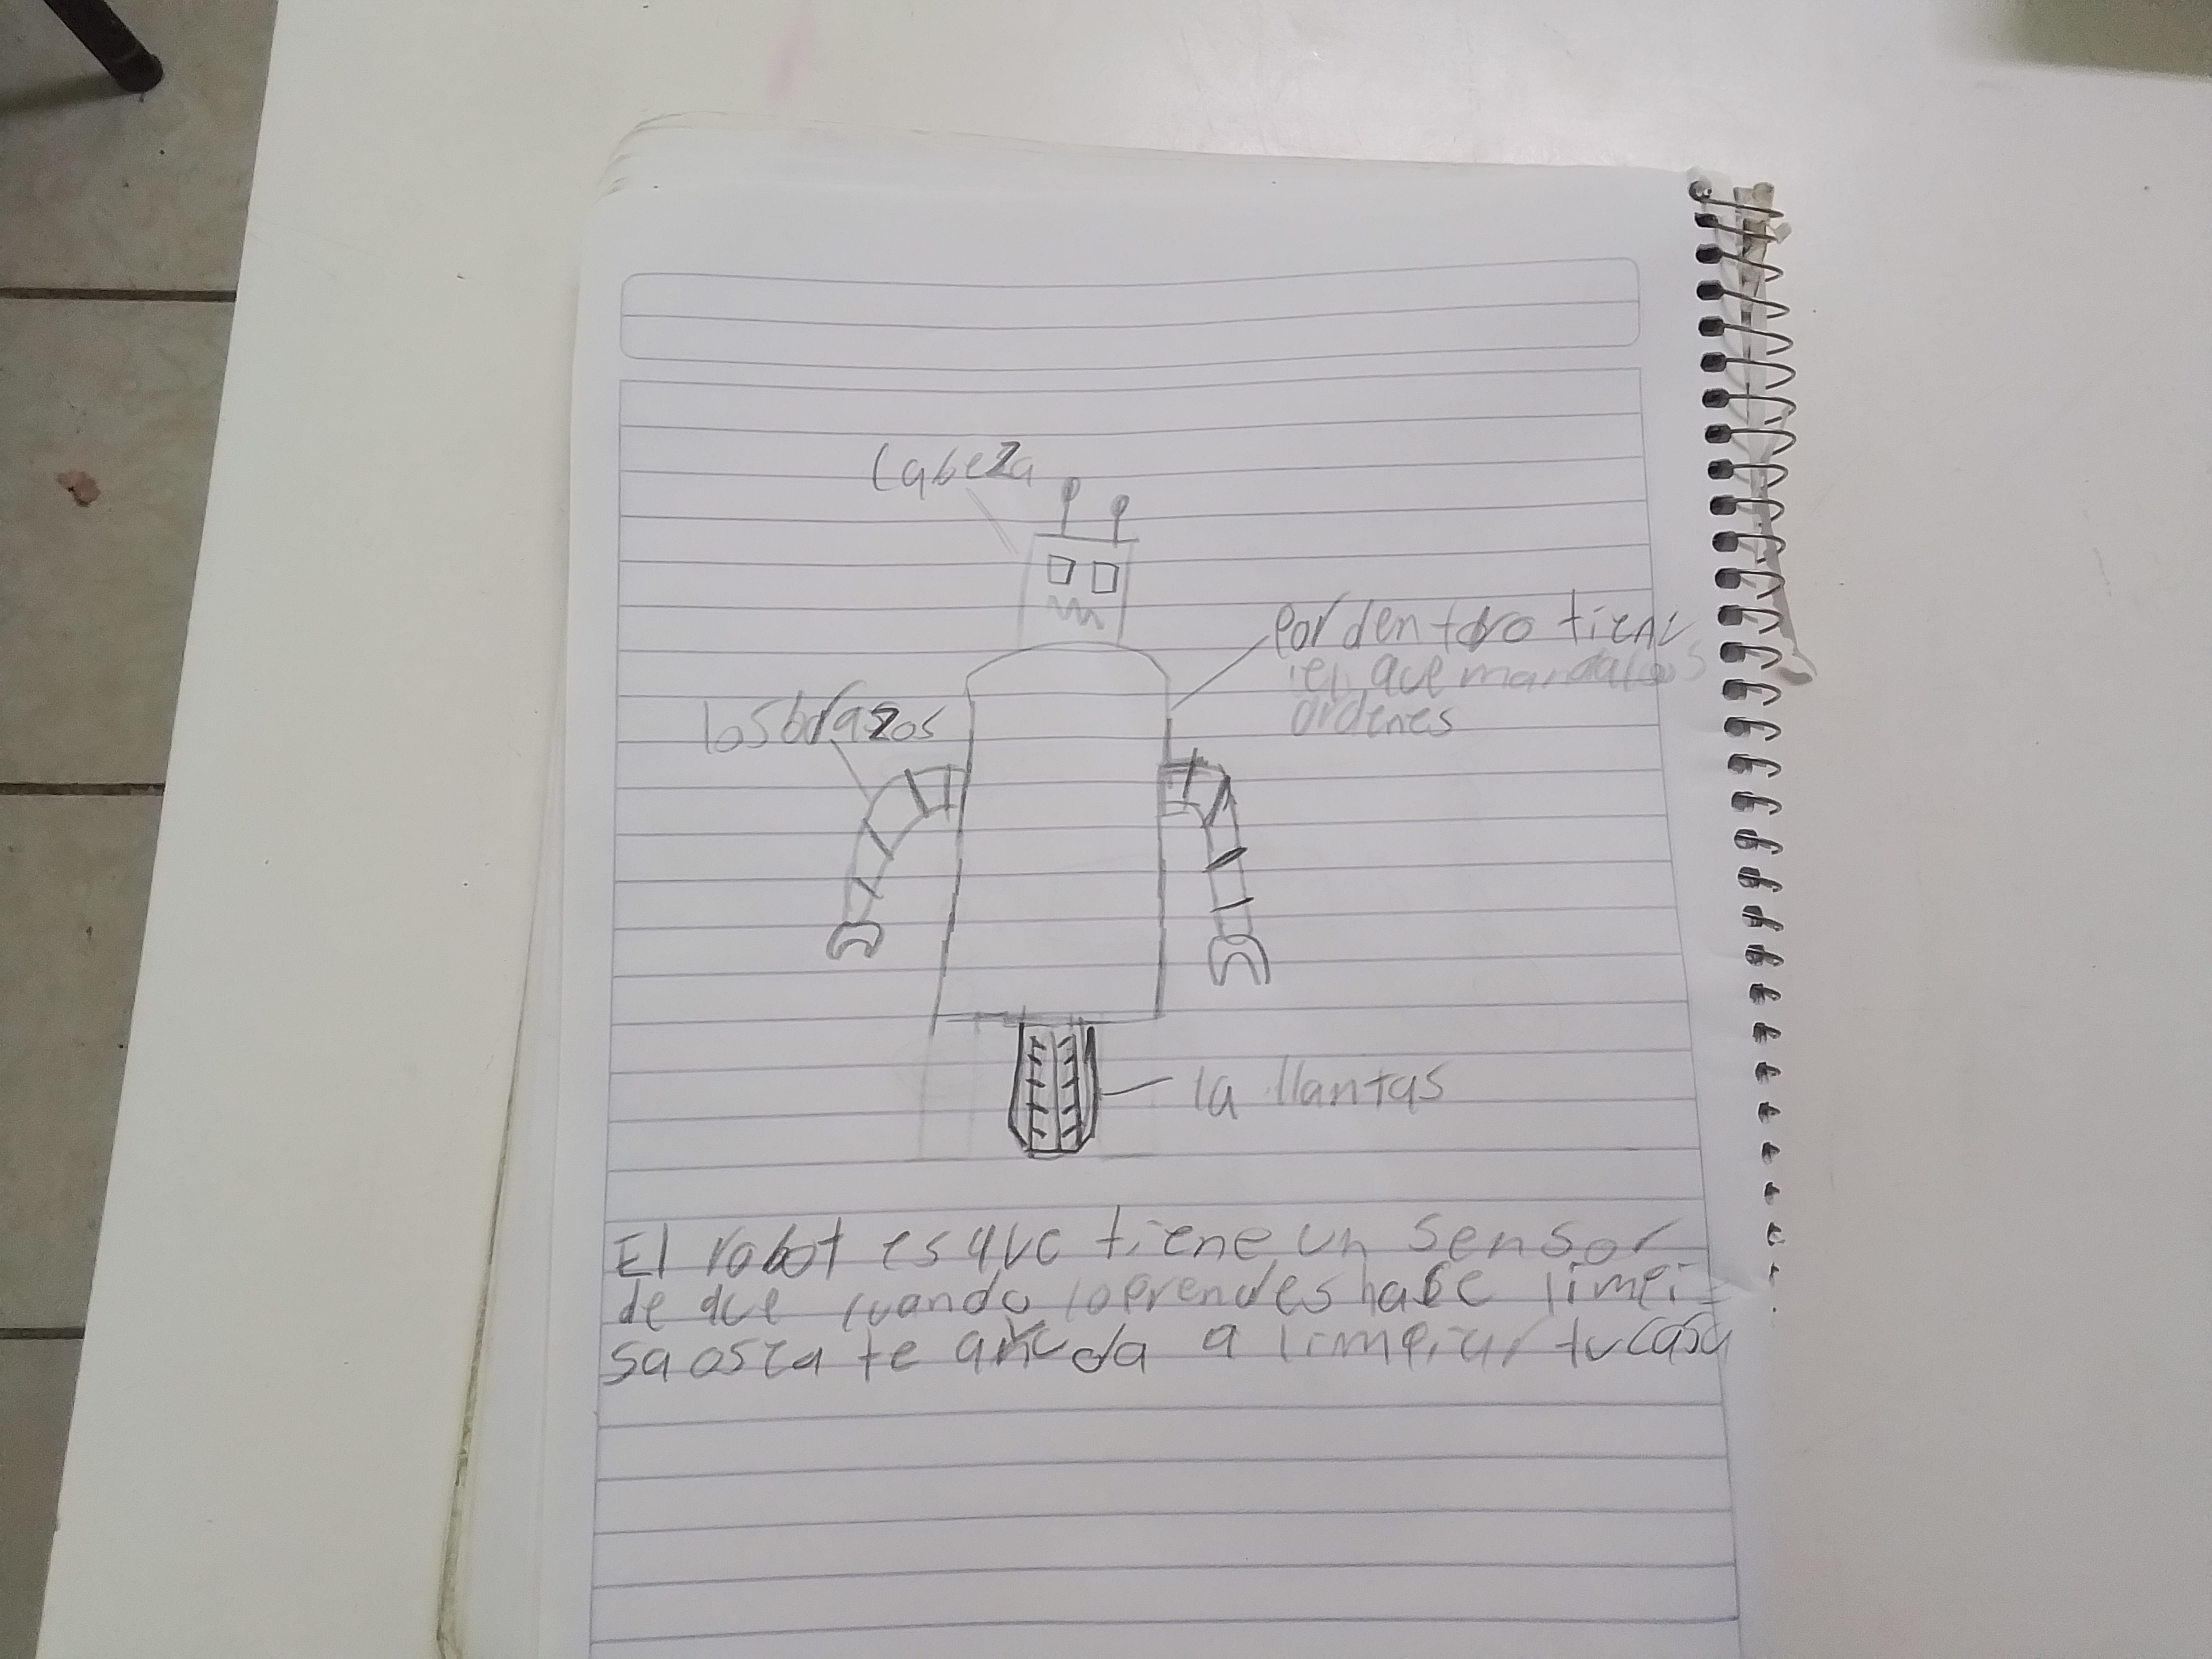 Cabeza
por dentro tiene
el que manda los
ordenes
los brazos
la llantas
El robot es que tiene un sensor
de que cuando lo prendes hace limpi-
sa osea te ayuda a limpiar tu casa